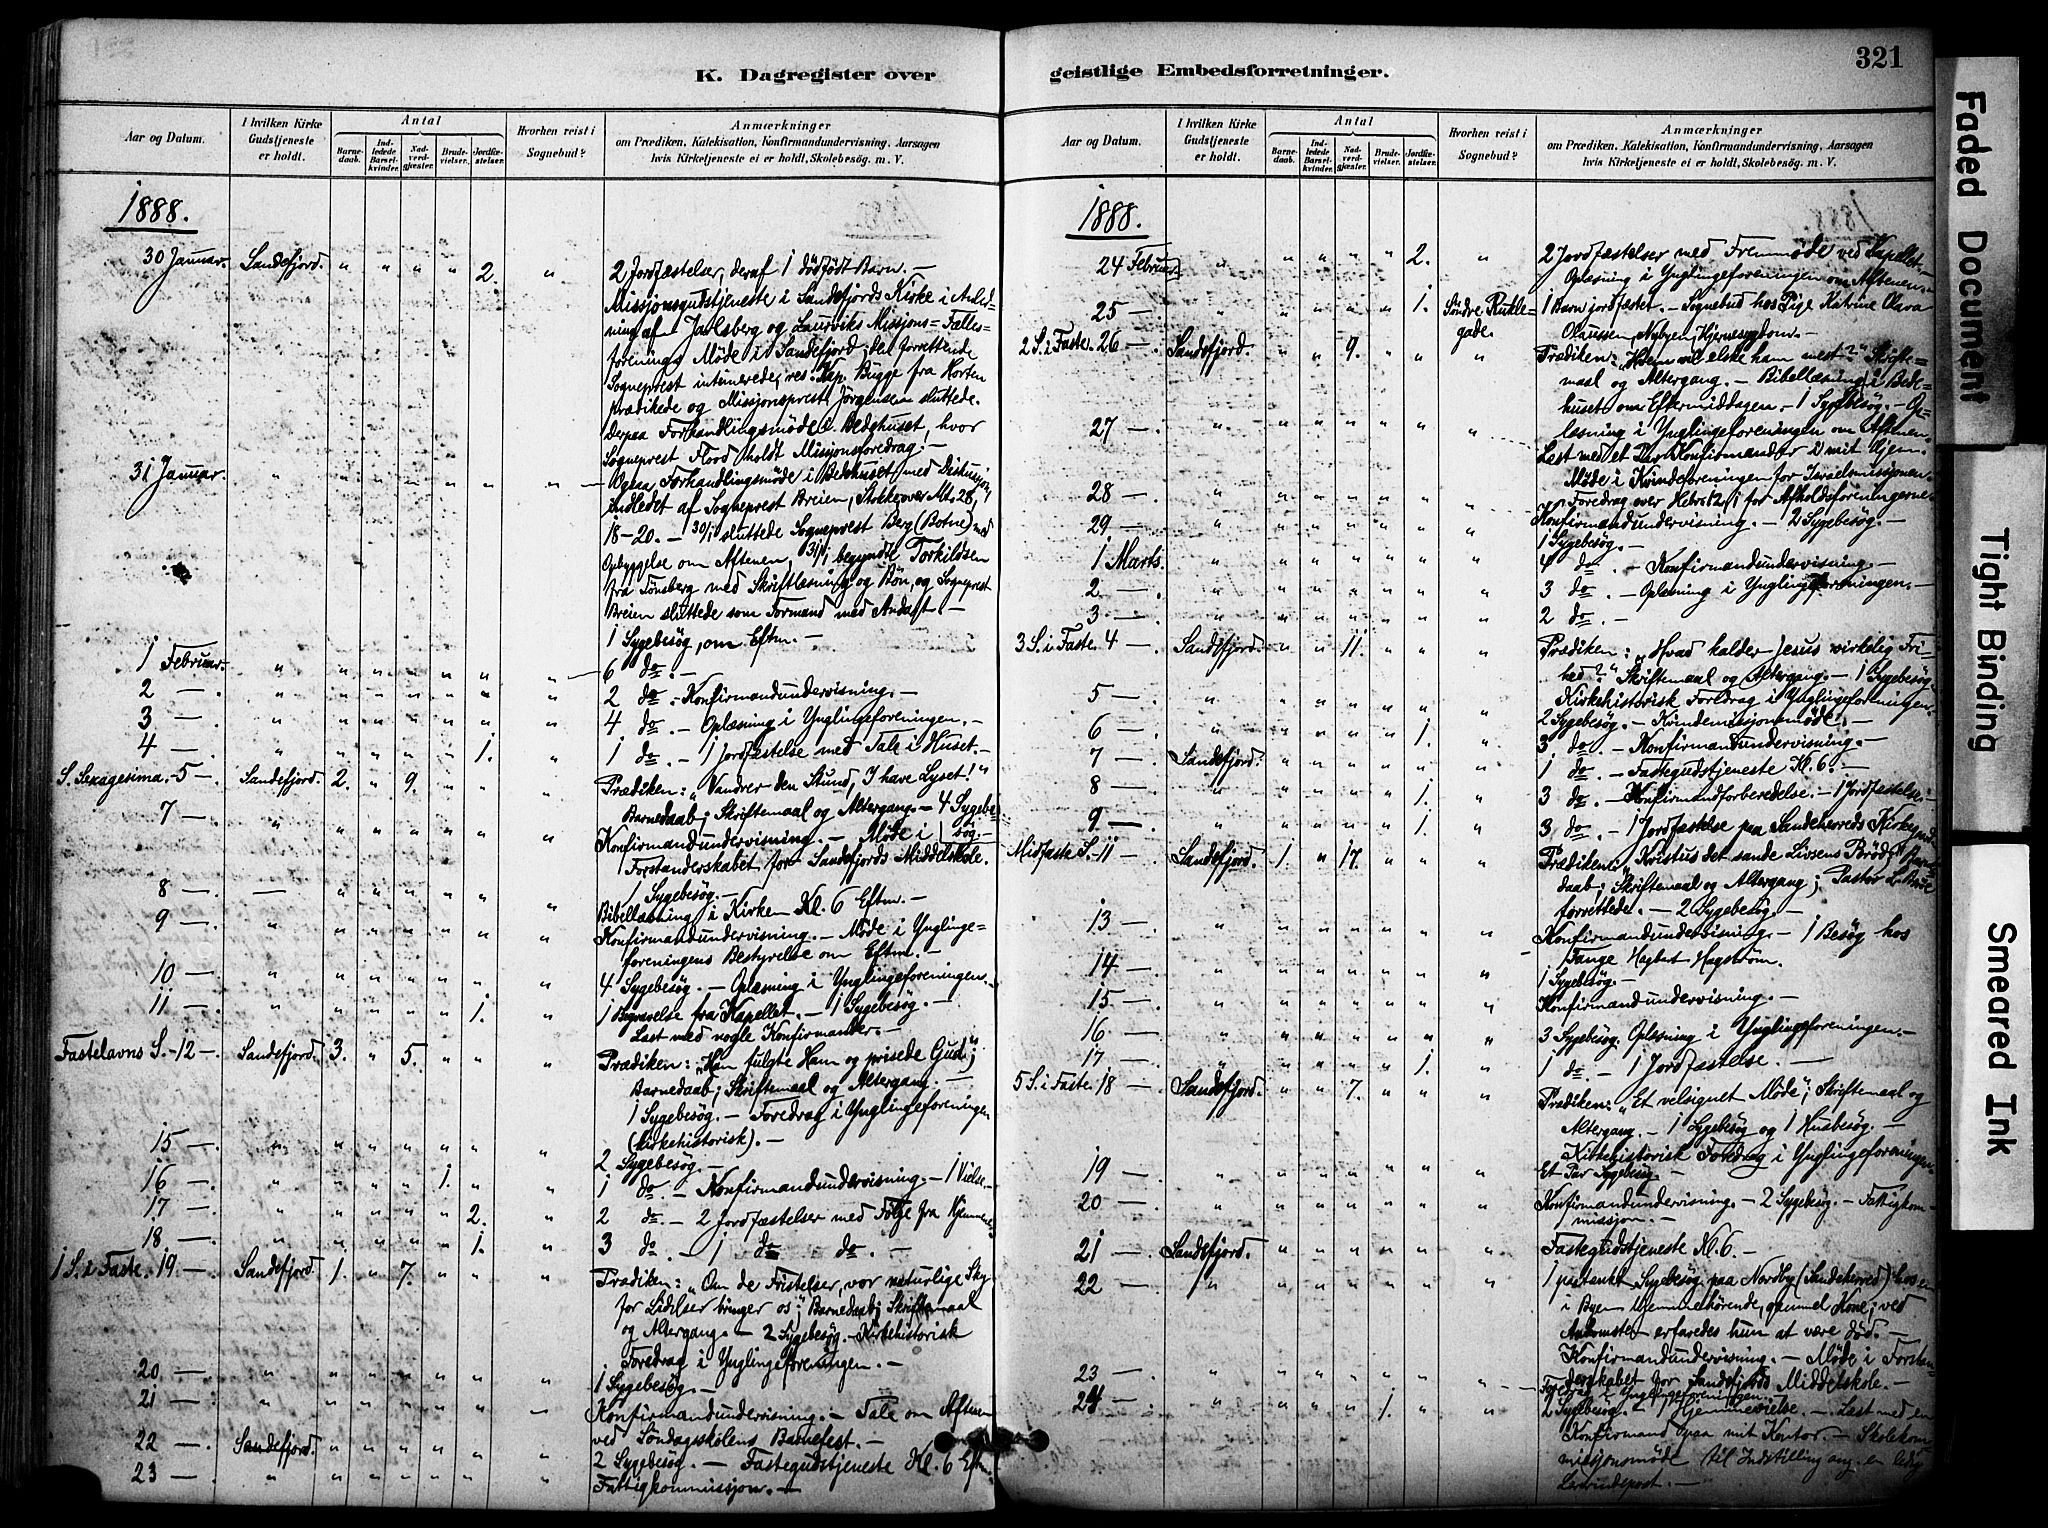 321
K. Dagregister over geistlige Embedsforretninger.
Aar og Datum.
I hvilken Kirke Gudstjeneste er holdt.
Antal
Barnedaab.
Indledede Barselkvinder.
Nadverdgjæster.
Brudevielser.
Jordfæstelser.
Hvorhen reist i Sognebud?
Anmærkninger
om Prædiken, Katekisation, Konfirmandundervisning, Aarsagen
hvis Kirketjeneste ei er holdt, Skolebesøg. m. V.
1888.
30 Januar. Sandefjord. " " " " 2. " 2 Jordfæstelser, deraf 1 dødfødt Barn. —
Missjonsgudstjeneste i Sandefjords Kirke i Anled-
ning af Jarlsberg og Laurviks Missjons=Fælles-
forenings Møde i Sandefjord; den forrettende
Sogneprest intimerede, res. Kap. Bugge fra Horten
prædikede og Missjonsprest Jørgensen sluttede.
Derpaa Forhandlingsmøde i Bedehuset, hvor
Sogneprest Flood holdt Missjonsforedrag. —
31 Januar. " " " " " " " Ogsaa Forhandlingsmøde i Bedehuset med Diskusjon,
indledet af Sogneprest Breien, Stokke, over Mt. 28,
18-20. — 30/1 sluttede Sogneprest Berg (Botne) med
Opbyggelse om Aftenen, 31/1 begyndte Torkildsen
fra Tönsberg med Skriftlæsning og Bön, og Sogneprest
Breien sluttede som Formand med Andagt. —
1 Sygebesøg, om Eftm. —
1 Februar " " " " " " " 6 do. —
2 — " " " " " " " 2 do. — Konfirmandundervisning. —
3 — " " " " " " " 4 do. — Oplæsning i Ynglingeforeningen. —
4 — " " " " " 1. " 1 do. — 1 Jordfæstelse med Tale i Huset. —
S. Sexagesima. 5 — Sandefjord. 2. " 9. " " " Prædiken: "Vandrer den Stund, I have Lyset!"
Barnedaab; Skriftemaal og Altergang. — 4 Sygebe-
søg. —
7 — " " " " " " " Konfirmandundervisning. — Møde i
Forstanderskabet for Sandefjords Middelskole.
1 Sygebesøg. —
8 — — " " " " " " Bibellæsning i Kirken Kl. 6 Eftm. —
9 — " " " " " " " Konfirmandundervisning. — Møde i Ynglinge=
foreningens Bestyrelse om Eftm. —
10 — " " " " " " " 4 Sygebesøg. — Oplæsning i Ynglingeforeningen. —
11 — " " " " " 1. " 1 Begravelse fra Kapellet. — 1 Sygebesøg. —
Læst med nogle Konfirmander. —
Fastelavns S. 12 — Sandefjord. 3. " 5. " " " Prædiken: "Han fulgte Ham og prisede Gud";
Barnedaab; Skriftemaal og Altergang. —
1 Sygebesøg. — Foredrag i Ynglingeforeningen
(kirkehistorisk). —
15 — " " " " " " " 2 Sygebesøg. —
16 — " " " " 1. " " 1 do. — Konfirmandundervisning. — 1 Vielse. —
17 — " " " " " 2. " 2 do. — 2 Jordfæstelser med Følge fra Hjemmene
18 — " " " " " 1. " 3 do. — 1 do do. —
1 S. i Faste. 19 — Sandefjord. 1. " 7. " " " Prædiken: "Om de Fristelser, vor naturlige Sky
for Lidelser bringer os"; Barnedaab; Skriftemaal
og Altergang. — 2 Sygebesøg. — Kirkehistorisk
Foredrag i Ynglingeforeningen. —
20 — " " " " " " " 1 Sygebesøg. —
21 — " " " " " " " Konfirmandundervisning. — Tale om Aftenen
ved Søndagsskolens Barnefest. —
22 — Sandefjord. " " " " " " 2 Sygebesøg. — Fastegudstjeneste Kl. 6 Eftm.
23 — " " " " " " " Fattigkommissjon. —
Aar og Datum.
I hvilken Kirke Gudstjeneste er holdt.
Antal
Barnedaab.
Indledede Barselkvinder.
Nadverdgjæster.
Brudevielser.
Jordfæstelser.
Hvorhen reist i Sognebud?
Anmærkninger
om Prædiken, Katekisation, Konfirmandundervisning, Aarsagen
hvis Kirketjeneste ei er holdt, Skolebesøg. m. V.
1888.
24 Februar " " " " " 2. " 2 Jordfæstelser med Fremmøde ved Kapellet. —
Oplæsning i Ynglingeforeningen om Aftenen. —
25 — " " " " " 1. Søndre 1 Barn jordfæstet. — Sognebud hos Pige Katrine Olava
gade. Olaussen, Nybyen, Hjernesygdom. —
2 S. i Faste. 26 — Sandefjord. " " 9. " " " Prædiken: "Hvem vil elske ham mest?" Skrifte=
maal og Altergang. — Bibellæsning i Bede-
huset om Eftermiddagen. — 1 Sygebesøg. — Op-
27 — " " " " " " " læsning i Ynglingeforeningen om Aftenen.
Læst med et Par Konfirmander i mit Hjem.
Møde i Kvindeforeningen for Israelsmissjonen.
28 — " " " " " " " Foredrag over Hebr. 12,1 for Afholdsforeningerne.
29 — " " " " " " " Konfirmandundervisning. — 2 Sygebesøg. —
1 Sygebesøg. —
1 Marts. " " " " " " " 4 do. — Konfirmandundervisning. —
2 — " " " " " " " 3 do. — Oplæsning i Ynglingeforeningen. —
3 — " " " " " " " 2 do. —
3 S. i Faste. 4 — Sandefjord. " " 11. " " " Prædiken: "Hvad kalder Jesus virkelig Fri-
hed?" Skriftemaal og Altergang. — 1 Sygebesøg. —
5 — " " " " " " " Kirkehistorisk Foredrag i Ynglingeforeningen. —
2 Sygebesøg. — Kvindemissjonsmøde. —
6 — " " " " " 1. " 3 do. — Konfirmandundervisning. —
7 — Sandefjord. " " " " " " 1 do. — Fastegudstjeneste Kl. 6. —
8 — " " " " " 1. " 3 do. — Konfirmandforberedelse. — 1 Jordfæstelse. —
9. — " " " " " 1. " 3 do. — 1 Jordfæstelse paa Sandeherreds Kirke
Midfaste S. 11 — Sandefjord. 1. " 17. " " " Prædiken: "Kristus det sande Livsens Brød"; Barne-
daab; Skriftemaal og Altergang; Pastor L.
forrettede. — 2 Sygebesøg. —
13 — " " " " " " " Konfirmandundervisning. — 1 Besøg hos
Fange Hagbart Hagstrøm.
14 — " " " " " " " 1 Sygebesøg. —
15 — " " " " " " " Konfirmandundervisning. —
16 — " " " " " " " 3 Sygebesøg. Oplæsning i Ynglingeforeningen. —
17 — " " " " " 1. " 1 do. — 1 Jordfæstelse. —
5 S. i Faste. 18 — Sandefjord. " " 7. " " " Prædiken: "Et velsignet Møde"; Skriftemaal og
Altergang. — 1 Sygebesøg og 1 Husbesøg. —
Kirkehistorisk Foredrag i Ynglingeforeningen.
19 — " " " " " " " Et Par Sygebesøg. —
20 — " " " " " " " Konfirmandundervisning. — 2 Sygebesøg. — Fattigkom-
missjon. —
21 — Sandefjord. " " " " " " Fastegudstjeneste Kl. 6. —
22 — " " " " " " " 1 påtænkt Sygebesøg paa Nordby (Sandeherred) hos en
i Byen hjemmehørende, gammel Kone; ved
Ankomsten erfaredes hun at være død. —
Konfirmandundervisning. — Møde i Forstan-
23 — " " " " " " " derskabet for Sandefjords Middelskole. —
Foredrag i Ynglingeforeningen. —
24 — " " " " 1. " " 2 Sygebesøg. — 1 Hjemmevielse. — Læst med en
Konfirmand paa mit Kontor. — Skolekom-
missjonsmøde til Indstilling ang. en ledig
Lærerindepost. —
Faded Document
Tight Binding
Smeared Ink